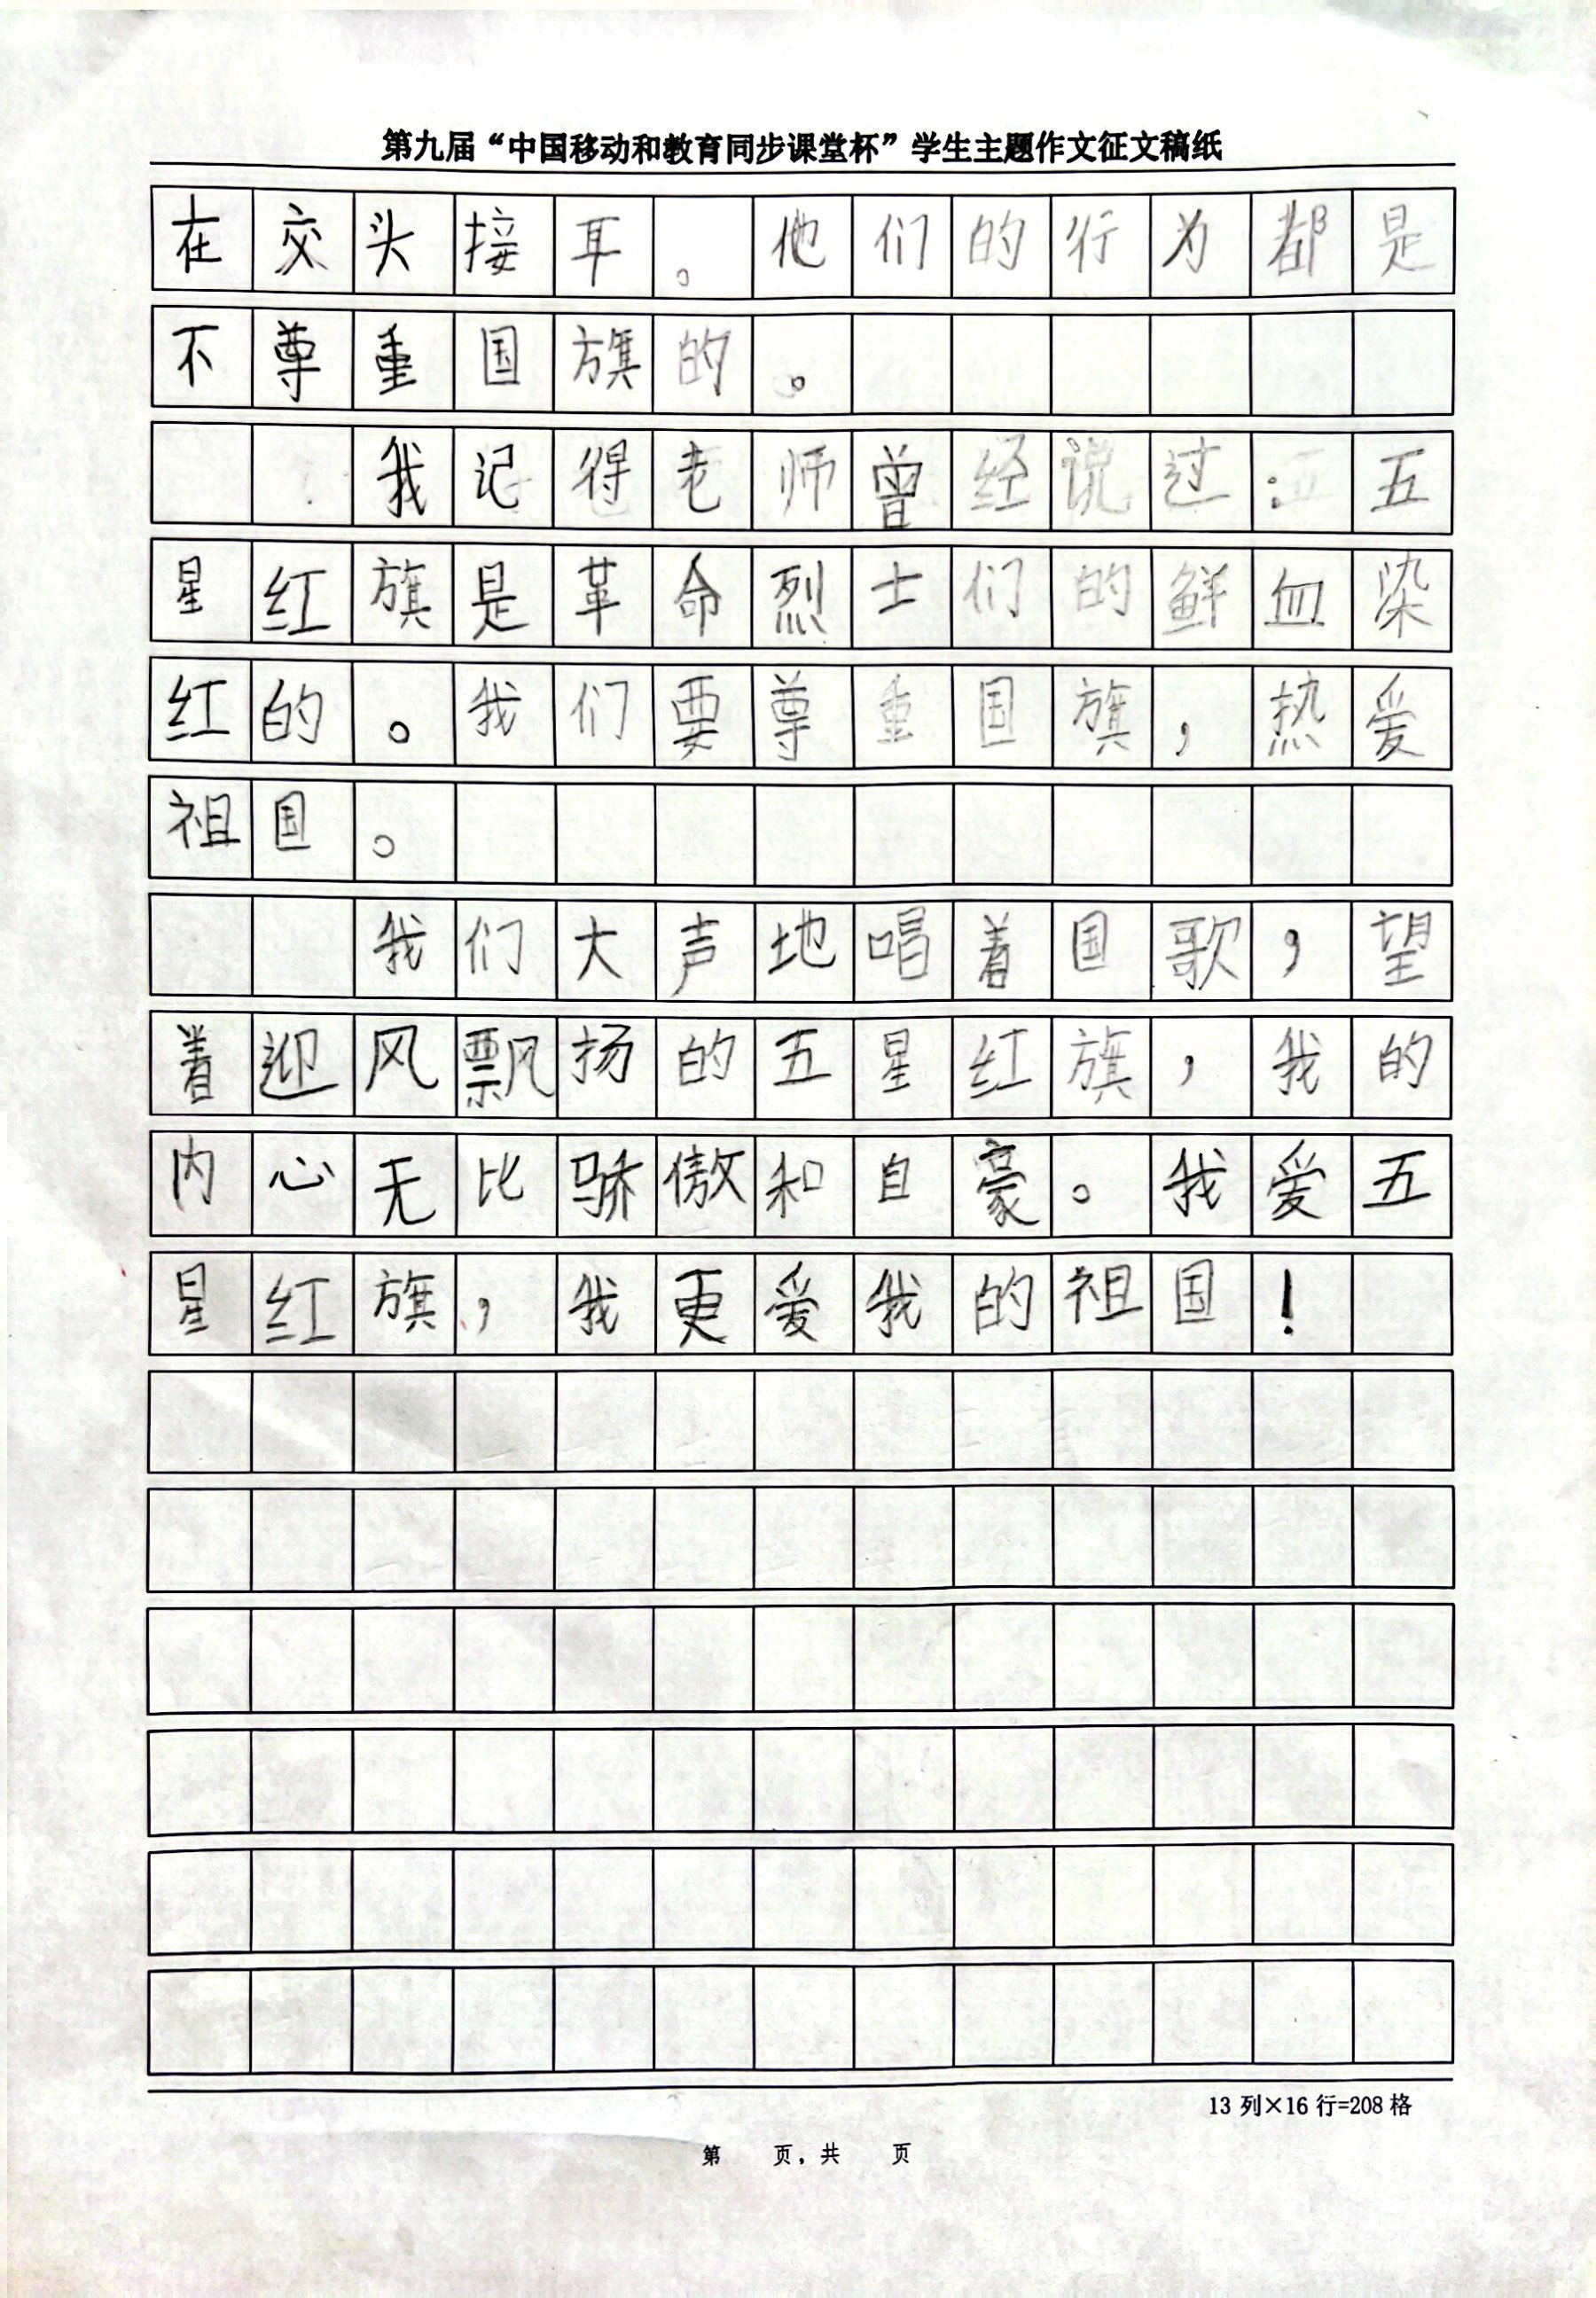 第九届“中国移动和教育同步课堂杯”学生主题作文征文稿纸
在交头接耳。他们的行为都是
不尊重国旗的。
我记得老师曾经说过：五
星红旗是革命烈士们的鲜血染
红的。我们要尊重国旗，热爱
祖国。
我们大声地唱着国歌，望
着迎风飘扬的五星红旗，我的
内心无比骄傲和自豪。我爱五
星红旗，我更爱我的祖国！
13列×16行=208格
第 页，共 页